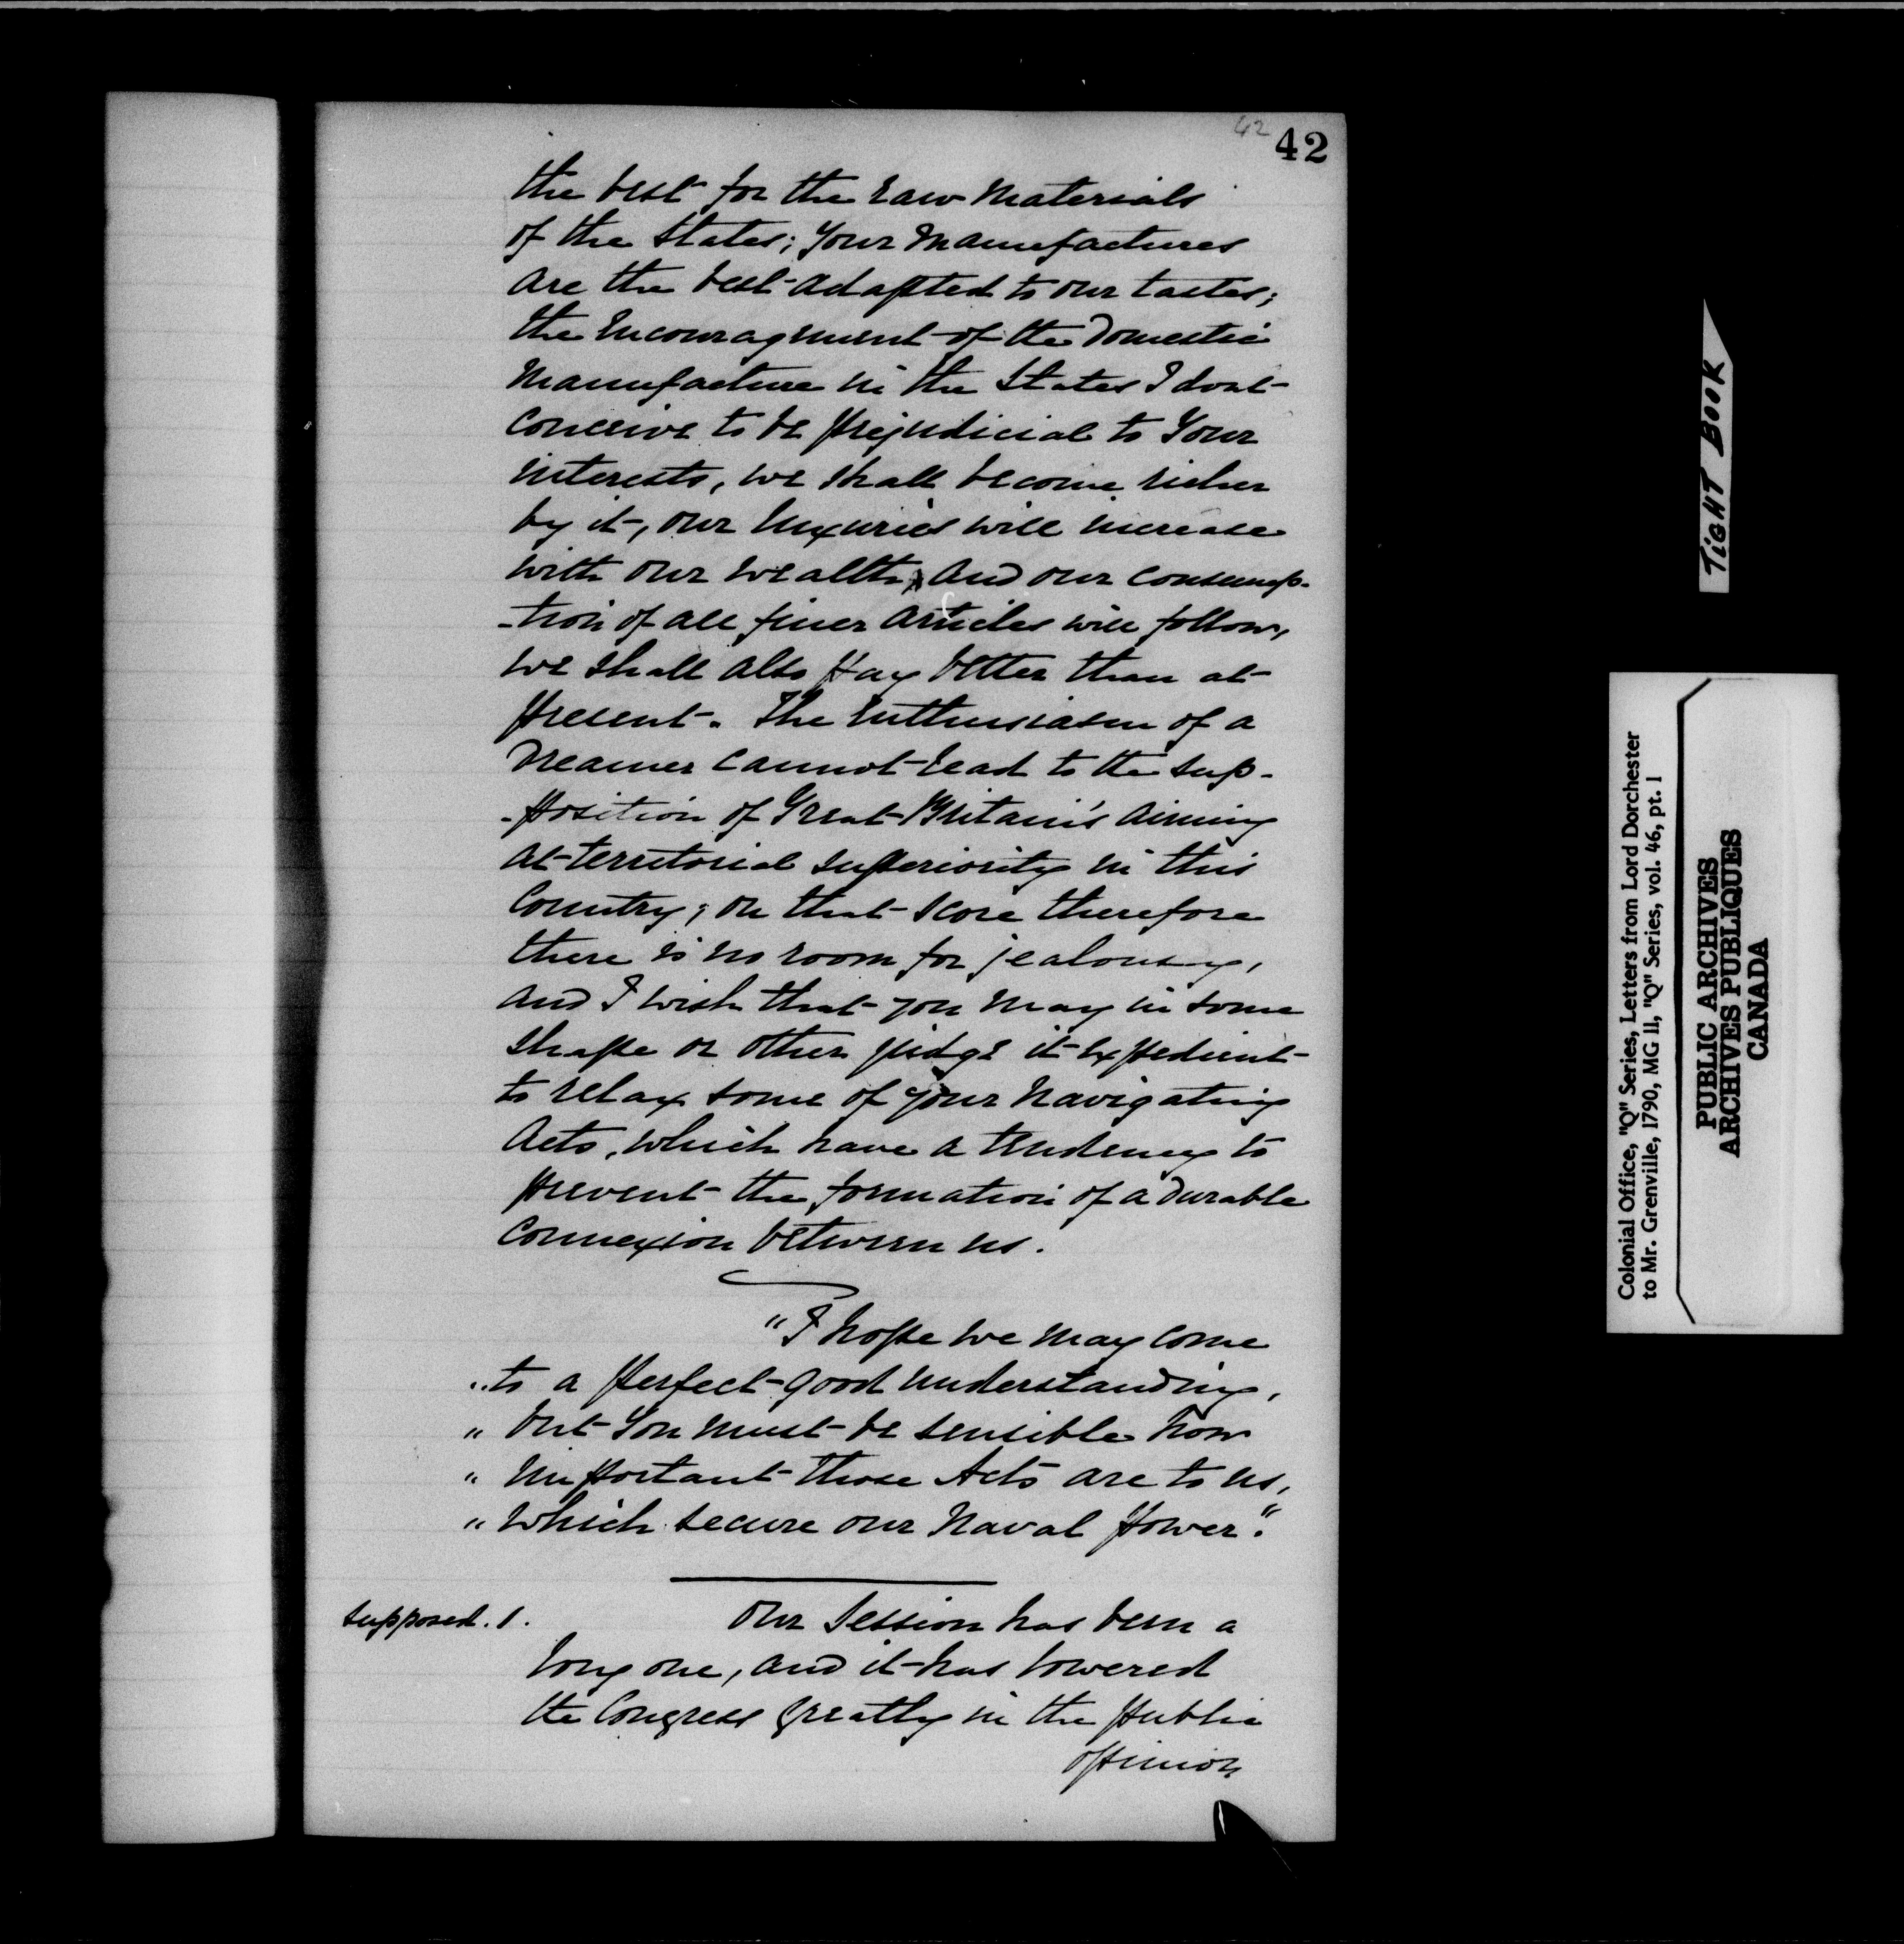 42 42
the best for the raw Materials
of the States; Your Manufactures
are the best adapted to our tastes;
the Encouragment of the Domestic
Manufacture in the States I dont
conceive to be prejudicial to Your
interests, we shall become richer
by it, our luxuries will increase
with our wealth, and our consump-
-tion of all finer articles will follow,
we shall also pay better than at
present. The Enthusiasm of a
Dreamer cannot lead to the sup-
-position of Great Britain's aiming
at territorial superiority in this
Country; on that score therefore
there is no room for jealousy,
and I wish that you may in some
shape or other judge it expedient
to relax some of your Navigating
Acts, which have a tendency to
prevent the formation of a durable
connexion between us.
"I hope we may come
" to a perfect good understanding,
" but You must be sensible how
" important those Acts are to us,
" which secure our Naval power."
supposed. 1. Our Session has been a
long one, and it has lowered
the Congress greatly in the public
opinion
TIGHT BOOK
Colonial Office, "Q" Series, Letters from Lord Dorchester
to Mr. Grenville, 1790, MG 11, "Q" Series, vol. 46, pt. 1
PUBLIC ARCHIVES
ARCHIVES PUBLIQUES
CANADA